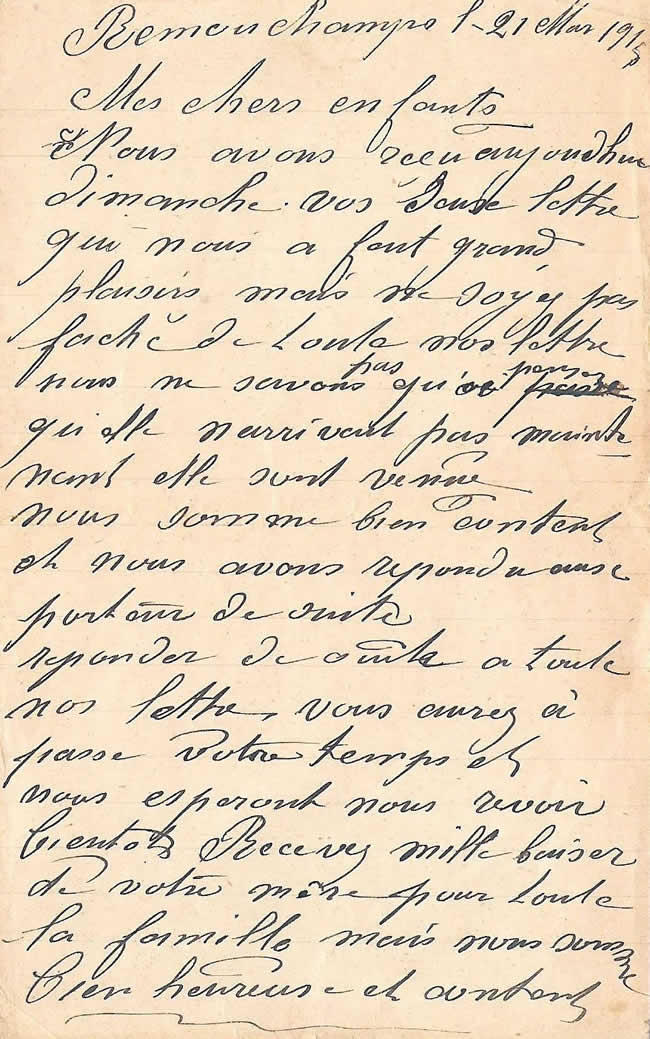 Remouchamps l-21 Mar 1915
Mes chers enfants
Nous avons reçu aujourdhui
dimanche vos deuse lettre
qui nous a fait grand
plaisirs mais ne soyez pas
fachĕ de toute nos lettre
nous ne savons pas qu'oi penser
qu'elle narrivait pas mainte
nant elle sont venue
nous somme bien content
et nous avons repondu ause
porteur de suite
reponder de suite a toute
nos lettre, vous aurez à
passe votre temps et
nous esperont nous revoir
bientot Recevez mille baiser
de votre mère pour toute
la famille mais nous somme
bien heureuse et content